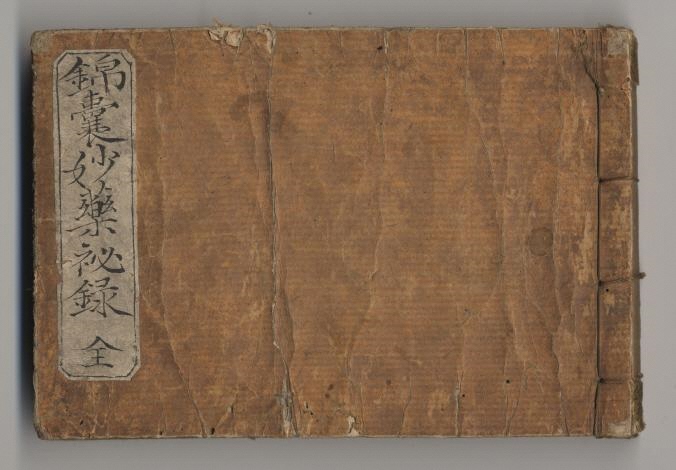 錦囊妙藥祕録 全